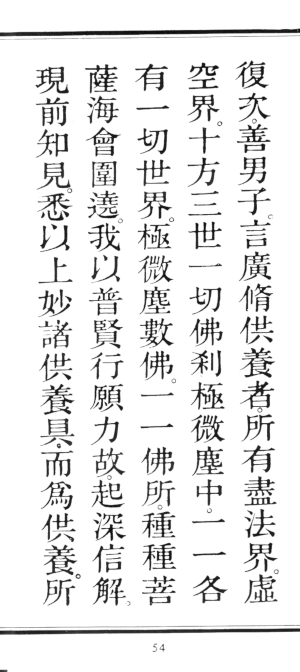 復次。善男子。言廣脩供養者。所有盡法界。虛
空界。十方三世一切佛剎極微塵中。一一各
有一切世界。極微塵數佛。一一佛所。種種菩
薩海會圍遶。我以普賢行願力故。起深信解。
現前知見。悉以上妙諸供養具。而為供養。所
54